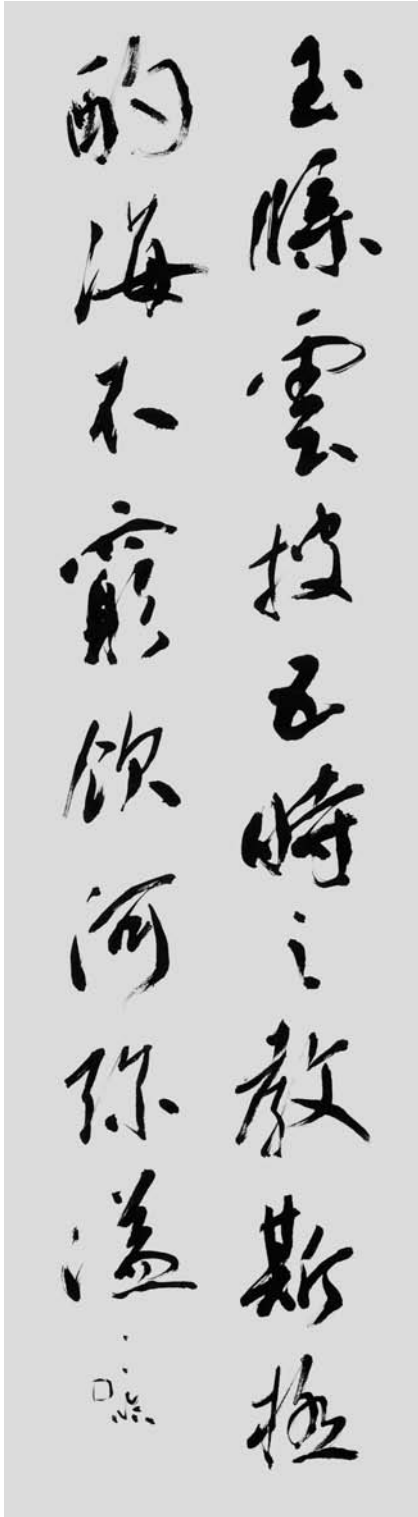 玉牒雲披五時之教斯極
酌海不窮飲河弥溢